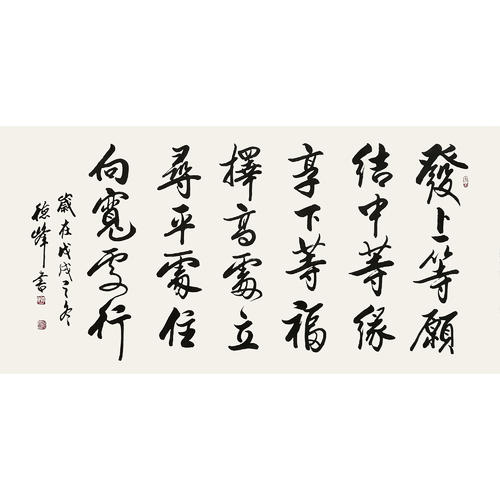 發上等願
結中等緣
享下等福
擇高處立
尋平處住
向寬處行
歲在戊戌之冬
德峰書